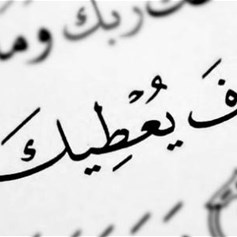 ربك وما
فَ يُعْطِيكَ